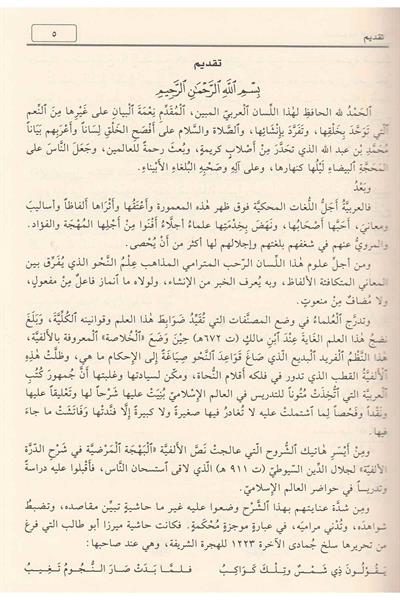 تقديم
٥
تقديم
بِسْمِ اللَّهِ الرَّحْمَٰنِ الرَّحِيمِ
اَلحَمْدُ لله الحافظِ لهٰذا اللسان العربيِّ المبين، المُقدَّمِ نِعْمَةَ البيان علىٰ غَيْرِها مِنَ النِّعم
الّتي تَوَحَّدَ بِخَلْقِها، وتفَرَّدَ بِإنْشائِها، والصّلاة والسّلام علىٰ أفْصَحِ الخَلْقِ لِساناً وأعْرَبِهم بَيَاناً
مُحَمَّدِ بْنِ عبد الله الذي تحدَّرَ مِنْ أصْلابٍ كريمةٍ، وبُعثَ رحمةً للعالمين، وجَعلَ النّاسَ على
المَحَجَّةِ البيضاءِ لَيْلُها كنهارها، وعلى آلِهِ وصَحْبِهِ البُلغاءِ الأَبْيناءِ.
وبَعْدُ
فالعربيَّةُ أجَلُّ اللُّغات المحكيَّة فوق ظهر هٰذه المعمورة وأَعْتَقُها وأَثْراها ألفاظاً وأساليبَ
ومعانيَ، أحَبَّها أصْحَابُها، ونَهَضَ بِخِدْمتِها علماءُ أجِلّاءُ أفْنَوا مِنْ أجْلِها المُهْجَةَ والفؤاد.
والمرويُّ عنهم في شغفهم بلغتهم وإجلالهم لها أكثر من أنْ يُحْصى.
ومن أجلِّ علوم هٰذا اللِّسان الرّحب المترامي المذاهب عِلْمُ النّحْوِ الذي يُفَرِّق بين
المعاني المتكافئة الألفاظ، وبه يُعرف الخبر من الإنشاء، ولولاه ما انماز فاعلٌ مِنْ مفعولٍ،
ولا مُضافٌ مِنْ منعوتٍ.
وتدرَّج العُلماءُ في وضع المصنَّفات التي تُقَيِّدُ ضوَابِطَ هٰذا العلم وقوانينه الكُلِّيَّة، وبَلَغَ
نضجُ هٰذا العلمِ الغايةَ عندَ ابْنِ مالكٍ (ت ٦٧٢هـ) حِيْنَ وَضَعَ «الخُلاصة» المعروفة بالألفيّة
هٰذا النَّظْمُ الفريد البديع الذي صَاغَ قَوَاعِدَ النَّحْوِ صِيَاغَةً إلى الإحكام ما هي، وظلَّتْ هٰذِهِ
الألفيّةُ القطب الذي تدور في فلكه أقلام النُّحاة، ومكّن لسيادتها وغلبتها أنَّ جُمهورَ كُتُبِ
العربيَّة التي اتُّخِذَتْ مُتُوناً للتدريس في العالم الإسلاميِّ بُنِيَتْ عليها شَرْحاً لها وتعليقاً عليها
ونَقْداً وفَحْصاً لِما اشتملت عليه لا تُغادرُ فيها صغيرةً ولا كبيرةً إلَّا فنَّدتْها وَفَاتشَتْ ما جاءَ
فيها.
ومِنْ أيْسَرِ هاتيكَ الشُّروح الّتي عالجتْ نَصَّ الألفيَّة «البَهْجَة المَرْضيّة في شَرْحِ الدرَّة
الألفيَّة» لجلال الدِّين السيوطيّ (ت ٩١١ هـ) الّذي لاقى استحسان النّاس، فأقْبلوا عليه دراسةً
وتدريساً في حواضر العالم الإسلاميِّ.
ومِن شدّة عنايتهم بهذا الشَّرْح وضعوا عليه غير ما حاشيةٍ تبيِّن مقاصده، وتضبطُ
شواهدَه، وتُدْني مراميَه، في عبارة موجزةٍ مُحْكَمةٍ. فكانت حاشية ميرزا أبو طالب التي فرغ
من تحريرها سلخ جُمادى الآخرة ١٢٢٣ للهجرة الشريفة، وهي عند صاحبها:
يَقُولُونَ ذِي شَمْسٌ وَتِلْكَ كَوَاكِبُ فلمَّا بَدَتْ صَارَ النُّجُومُ تَغِيبُ